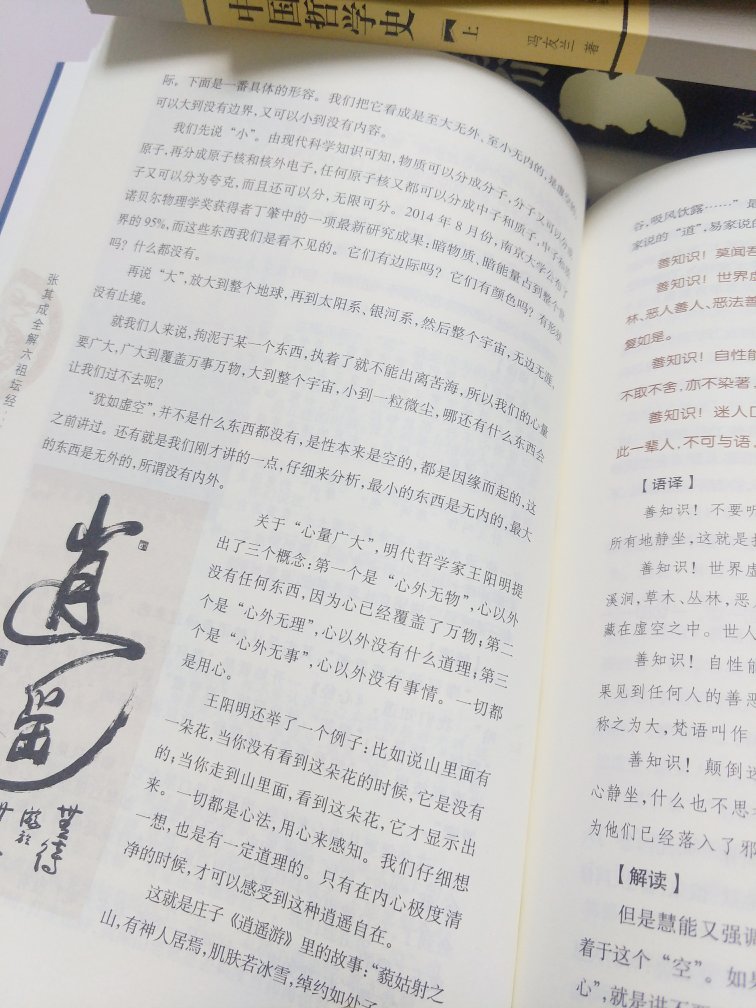 中国哲学史
上
冯友兰 著
林
际。下面是一番具体的形容。我们把它看成是至大无外、至小无内的,是虚空的,
可以大到没有边界,又可以小到没有内容。
我们先说“小”。由现代科学知识可知,物质可以分成分子,分子又可以分成
原子,再分成原子核和核外电子,任何原子核又都可以分成中子和质子,中子和质
子又可以分为夸克,而且还可以分,无限可分。2014年8月份,南京大学公布了
诺贝尔物理学奖获得者丁肇中的一项最新研究成果:暗物质、暗能量占到整个世
界的95%,而这些东西我们是看不见的。它们有边际吗?它们有颜色吗?有形状
吗?什么都没有。
再说“大”,放大到整个地球,再到太阳系、银河系,然后整个宇宙,无边无涯,
没有止境。
就我们人来说,拘泥于某一个东西,执着了就不能出离苦海,所以我们的心量
要广大,广大到覆盖万事万物,大到整个宇宙,小到一粒微尘,哪还有什么东西会
让我们过不去呢?
“犹如虚空”,并不是什么东西都没有,是性本来是空的,都是因缘而起的,这
之前讲过。还有就是我们刚才讲的一点,仔细来分析,最小的东西是无内的,最大
的东西是无外的,所谓没有内外。
关于“心量广大”,明代哲学家王阳明提
出了三个概念:第一个是“心外无物”,心以外
没有任何东西,因为心已经覆盖了万物;第二
个是“心外无理”,心以外没有什么道理;第三
个是“心外无事”,心以外没有事情。一切都
是用心。
王阳明还举了一个例子:比如说山里面有
一朵花,当你没有看到这朵花的时候,它是没有
的;当你走到山里面,看到这朵花,它才显示出
来。一切都是心法,用心来感知。我们仔细想
一想,也是有一定道理的。只有在内心极度清
净的时候,才可以感受到这种逍遥自在。
这就是庄子《逍遥游》里的故事:“藐姑射之
山,有神人居焉,肌肤若冰雪,绰约如处子
张其成全解六祖坛经
逍遥
谷,吸风饮露……”是
家说的“道”,易家说的
善知识!莫闻吾
善知识!世界虚
林、恶人善人、恶法善
复如是。
善知识!自性能
不取不舍,亦不染著,
善知识!迷人口
此一辈人,不可与语,
【语译】
善知识!不要听
所有地静坐,这就是执
善知识!世界虚
溪涧,草木、丛林,恶
藏在虚空之中。世人
善知识!自性能
果见到任何人的善恶
称之为大,梵语叫作
善知识!颠倒迷
心静坐,什么也不思
为他们已经落入了邪
【解读】
但是慧能又强调
着于这个“空”。如果
心”,就是讲